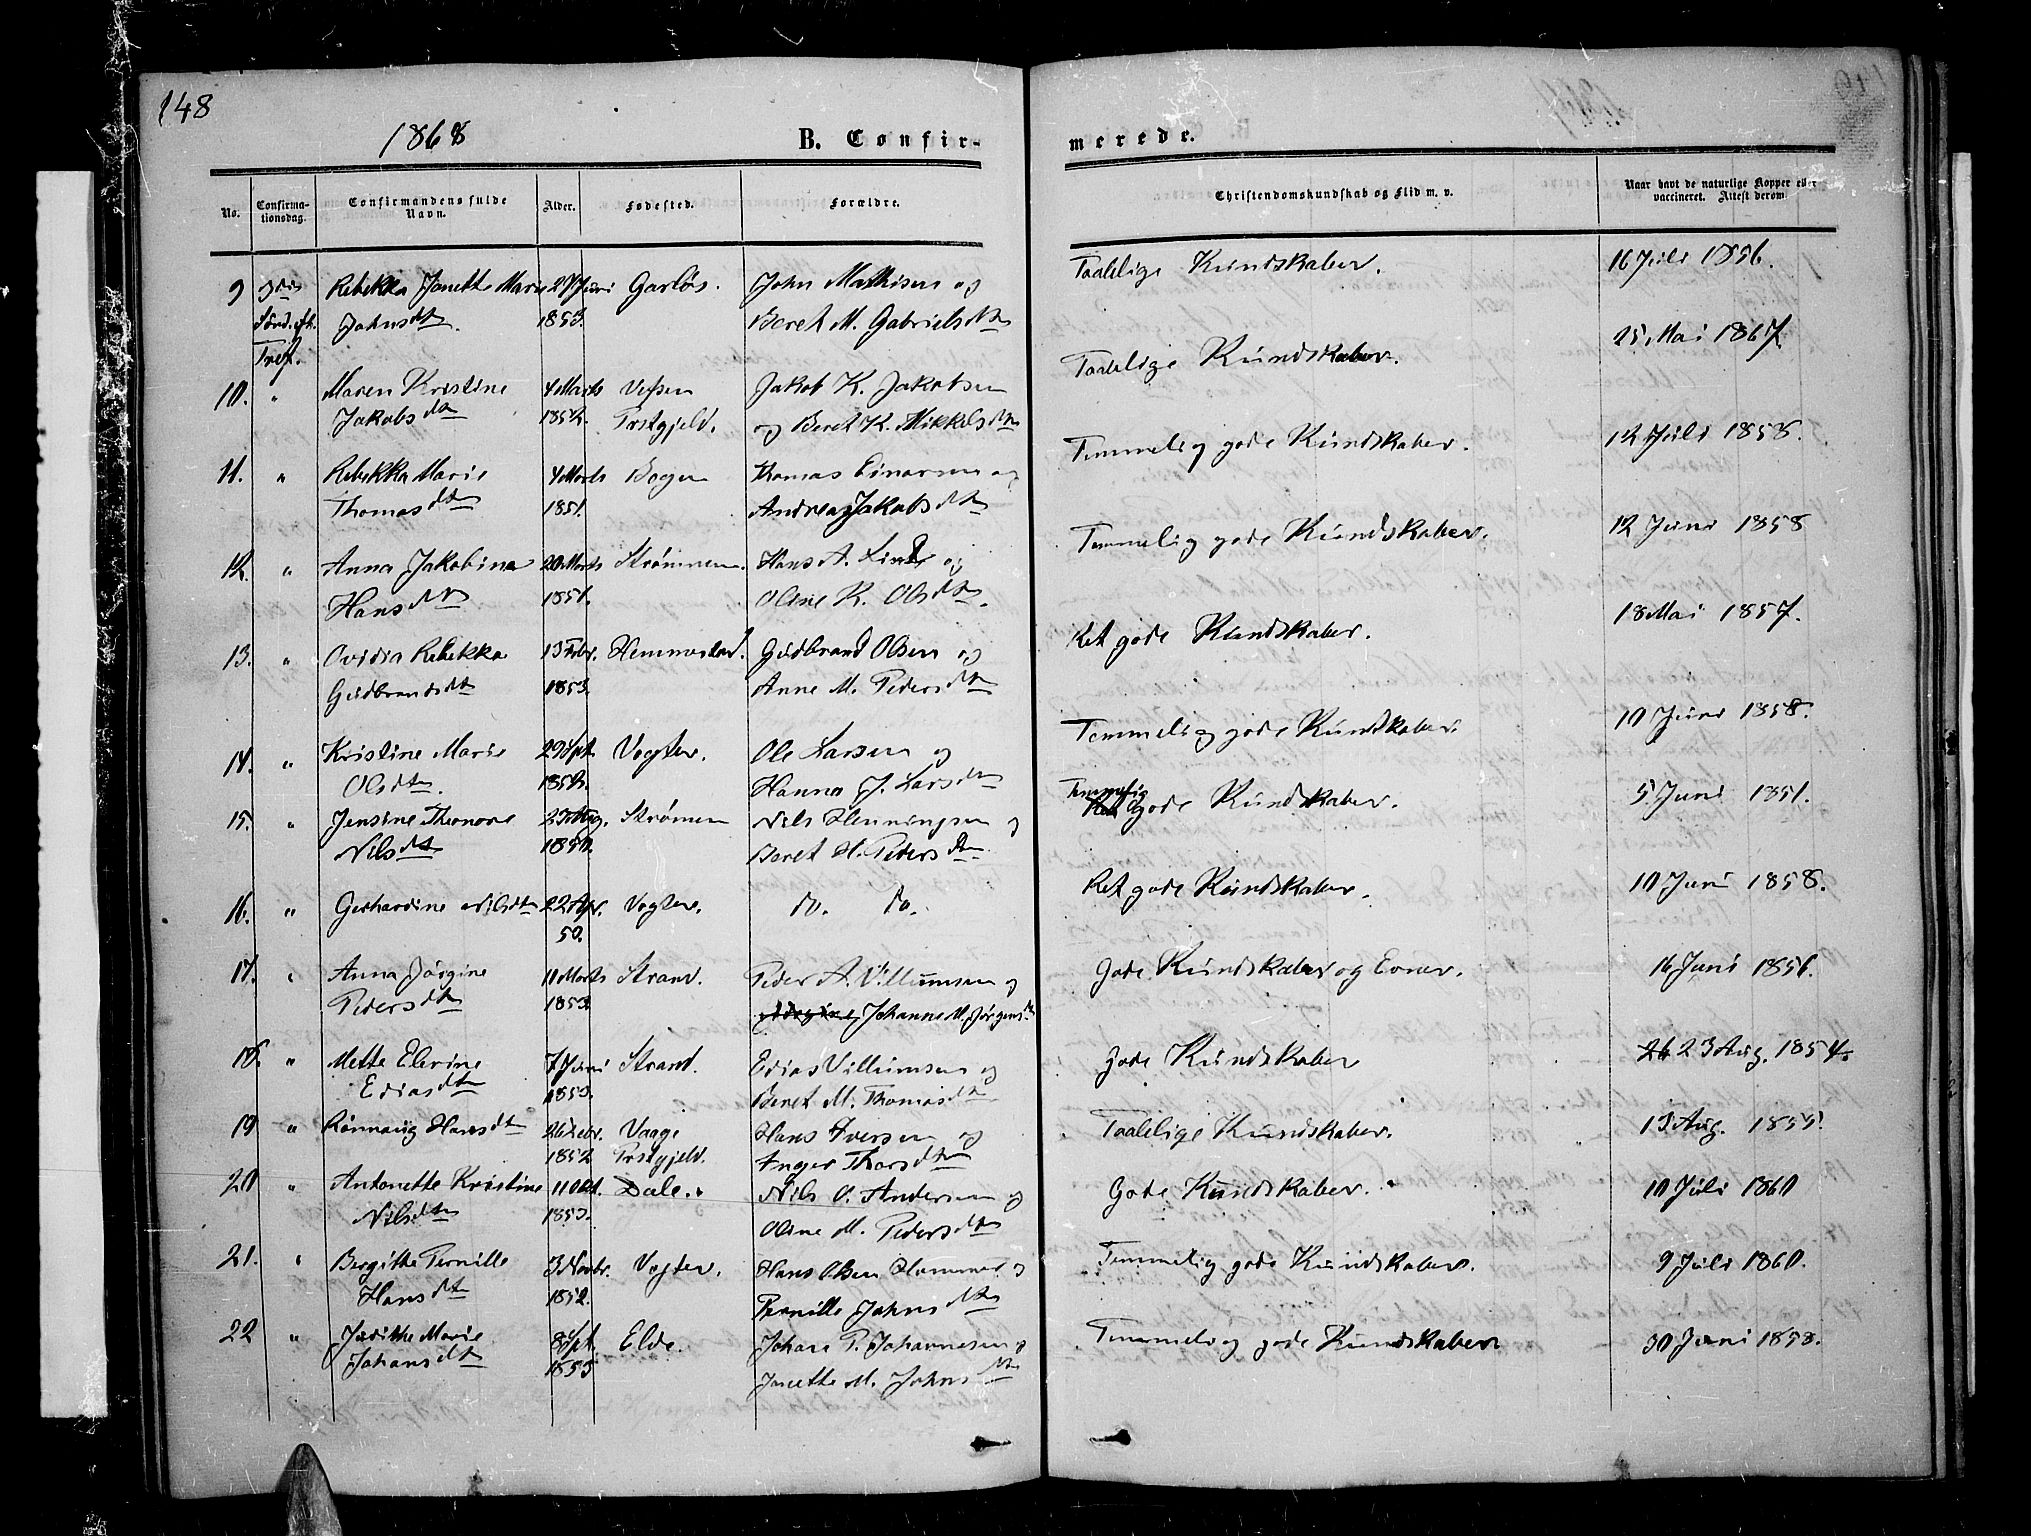 148
1868
B. Confir-
merede.
No.
Confirma-
tionsdag.
Confirmandens fulde
Navn.
Alder.
Fødested.
Forældre.
Christendomskundskab og Flid m. v.
Naar havt de naturlige Kopper eller
vaccineret. Attest derom.
9 Rebekka Janette Marie 27 Juni Garløs. John Mathisen og Taalelige Kundskaber. 16 Juli 1856.
Sønd. eft. Johnsdtr. 1853. Beret M. Gabrielsdtr
Tref.
10. " Maren Kristine 4 Marts Vefsen Jakob K. Jakobsen Taalelige Kundskaber. 25 Mai 1867
Jakobsdtr 1852. Prstgjeld. og Beret K. Mikkelsdtr
11. " Rebekka Marie 4 Marts Bogen Thomas Einarsen og Temmelig gode Kundskaber. 12 Juli 1858.
Thomasdtr 1851. Andrea Jakobsdtr
12. " Anna Jakobina 20 Marts Strømmen. Hans A. Lind og Temmelig gode Kundskaber. 12 Juni 1858
Hansdtr 1851. Oline K. Olsdtr.
13. " Ovidia Rebekka 13 Febr. Hemmestad. Gudbrand Olsen og Ret gode Kundskaber. 18 Mai 1857.
Gudbrandsdtr 1853. Anne M. Pedersdtr
14. " Kristine Marie 29 Spt. Vogter. Ole Larsen og Temmelig gode Kundskaber. 10 Juni 1858.
Olsdtr. 1852. Hanna J. Larsdtr
15. " Jensine Theonore Aug. Strømen Nils Henningsen og Temmelig gode Kundskaber. 5 Juni 1851.
Nilsdtr 1850. Beret H. Pedersdtr.
16. " Gerhardine Nilsdtr 22 Apr. Vogter. do. do. Ret gode Kundskaber. 10 Juni 1858.
50.
17. " Anna Jørgine 11 Marts Strand. Peder A. Villumsen og Gode Kundskaber og Evner. 16 Juni 1856.
Pedersdtr 1853. Johanne M. Jørgensdtr
18. " Mette Elerine 7 Juni Strand. Edias Villumsen og Gode Kundskaber 23 Aug. 1854.
Ediasdtr 1853. Beret M. Thomasdtr
19 " Rønnaug Hansdtr 26 Febr. Vaage Hans Iversen og Taalelige Kundskaber. 13 Aug. 1855.
1852 Prstgjeld. Inger Thorsdtr
20 " Antonette Kristine 11 Okt. Dale. Nils O. Andersen og Gode Kundskaber. 10 Juli 1860
Nilsdtr 1853. Oline M. Pedersdtr
21. " Bergitte Pernille 3 Novbr. Vogter. Hans Olsen Hammer og Temmelig gode Kundskaber. 9 Juli 1860.
Hansdtr 1852. Pernille Johnsdtr
22 " Judithe Marie 8 Spt. Elde. Johan P. Johannesen og Temmelig gode Kundskaber 30 Juni 1858.
Johansdtr 1853 Janette M. Johnsdtr